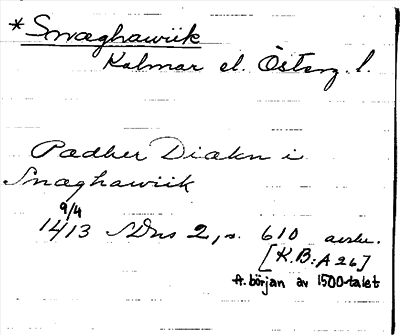 *Snæghawiik
Kalmar el. Österg. l.
Pædher Diækn i
Snæghawiik
9/4
1413 SDns 2, s. 610 avskr.
[K.B: A 26]
A. början av 1500-talet